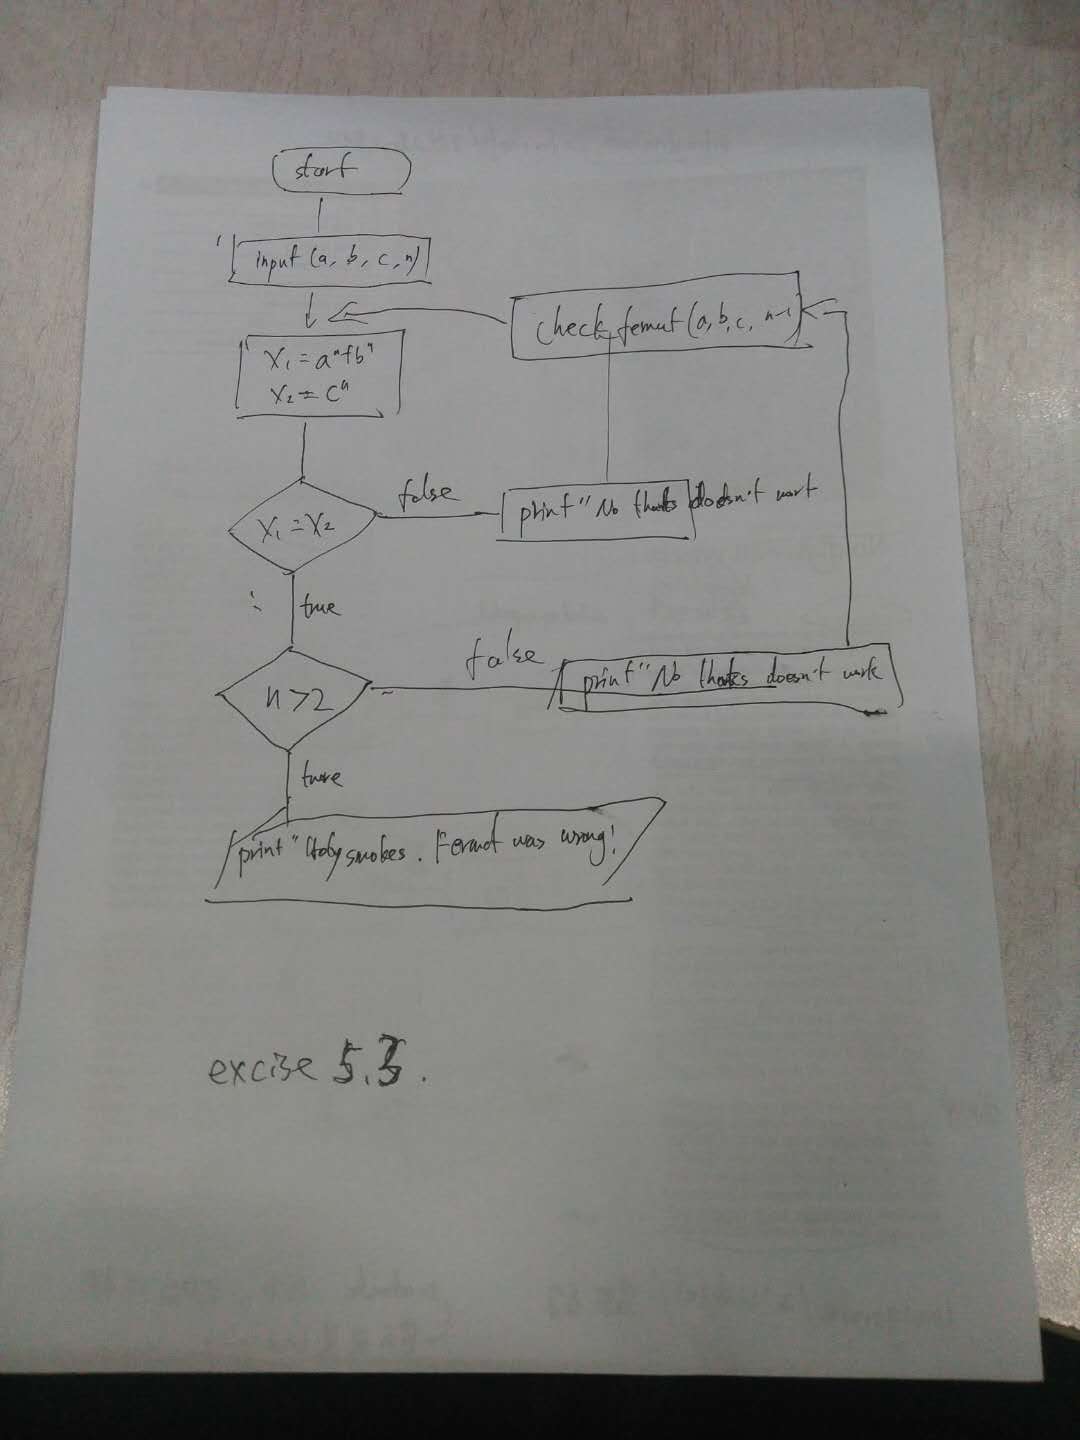 start
input (a, b, c, n)
check_femut(a, b, c, n-1)
X₁ = aⁿ+bⁿ
X₂ = cⁿ
X₁ = X₂
false
print "No thats doesn't work
true
n>2
false
print "No thats doesn't work
ture
print "Holy smokes. Fermat was wrong!
excise 5.3.